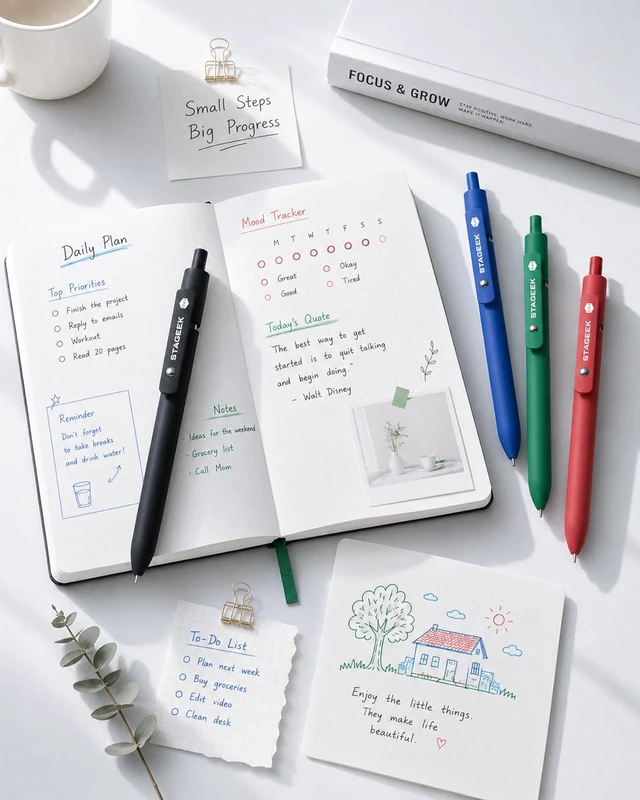 Small Steps
Big Progress
FOCUS & GROW
STAY POSITIVE, WORK HARD.
MAKE IT HAPPEN.
Daily Plan
Top Priorities
Finish the project
Reply to emails
Workout
Read 20 pages
Reminder
Don't forget
to take breaks
and drink water!
Notes
· Ideas for the weekend
· Grocery list
· Call Mom
STAGEEK
Mood Tracker
M T W T F S S
Great
Okay
Good
Tired
Today's Quote
"The best way to get
started is to quit talking
and begin doing."
- Walt Disney
STAGEEK
STAGEEK
STAGEEK
To-Do List
Plan next week
Buy groceries
Edit video
Clean desk
Enjoy the little things.
They make life
beautiful.